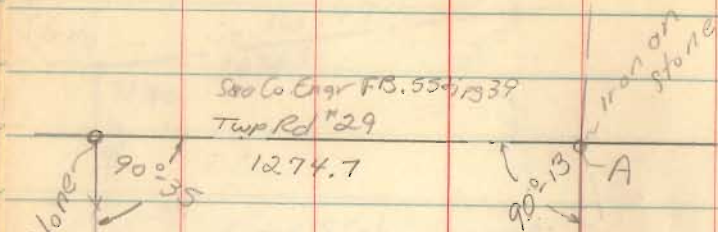 Iron on
stone
See Co. Engr FB. 55 pg 39
Twp Rd #29
1274.7
90°-35
90°-13
A